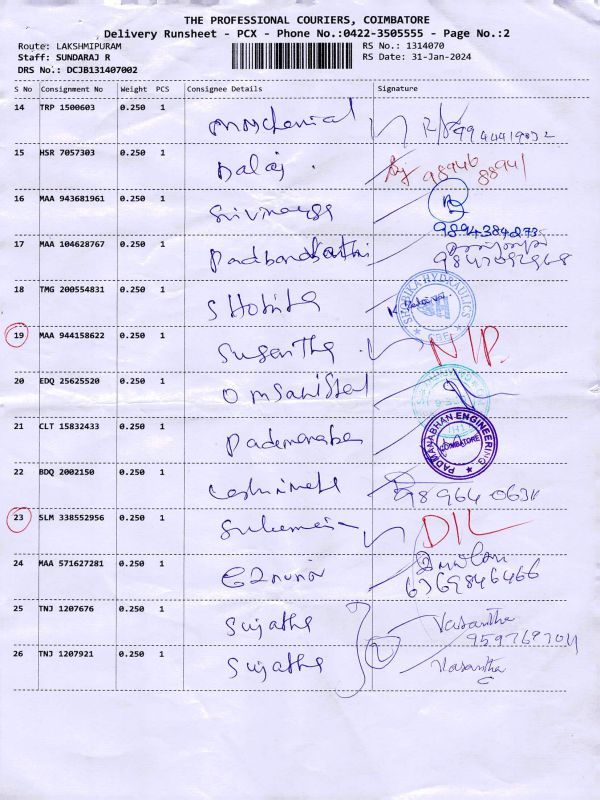 THE PROFESSIONAL COURIERS, COIMBATORE
Delivery Runsheet - PCX - Phone No.:0422-3505555 - Page No.:2
Route: LAKSHMIPURAM
RS No.: 1314070
Staff: SUNDARAJ R
RS Date: 31-Jan-2024
DRS No.: DCJB131407002
S No Consignment No Weight PCS Consignee Details Signature
14 TRP 1500603 0.250 1
15 HSR 7057303 0.250 1 Balaj 98946
88941
16 MAA 943681961 0.250 1 Srivinayga
9894384273
17 MAA 104628767 0.250 1
18 TMG 200554831 0.250 1 Shobika
19 MAA 944158622 0.250 1 Susantha N/P.
20 EDQ 25625520 0.250 1
21 CLT 15832433 0.250 1 Padmanaba PADMANABHAN ENGINEERING COIMBATORE
22 BDQ 2002150 0.250 1
23 SLM 338552956 0.250 1 D/L
24 MAA 571627281 0.250 1
6369846466
25 TNJ 1207676 0.250 1 Sujatha Vasantha
26 TNJ 1207921 0.250 1 Sujatha 2 Vasantha